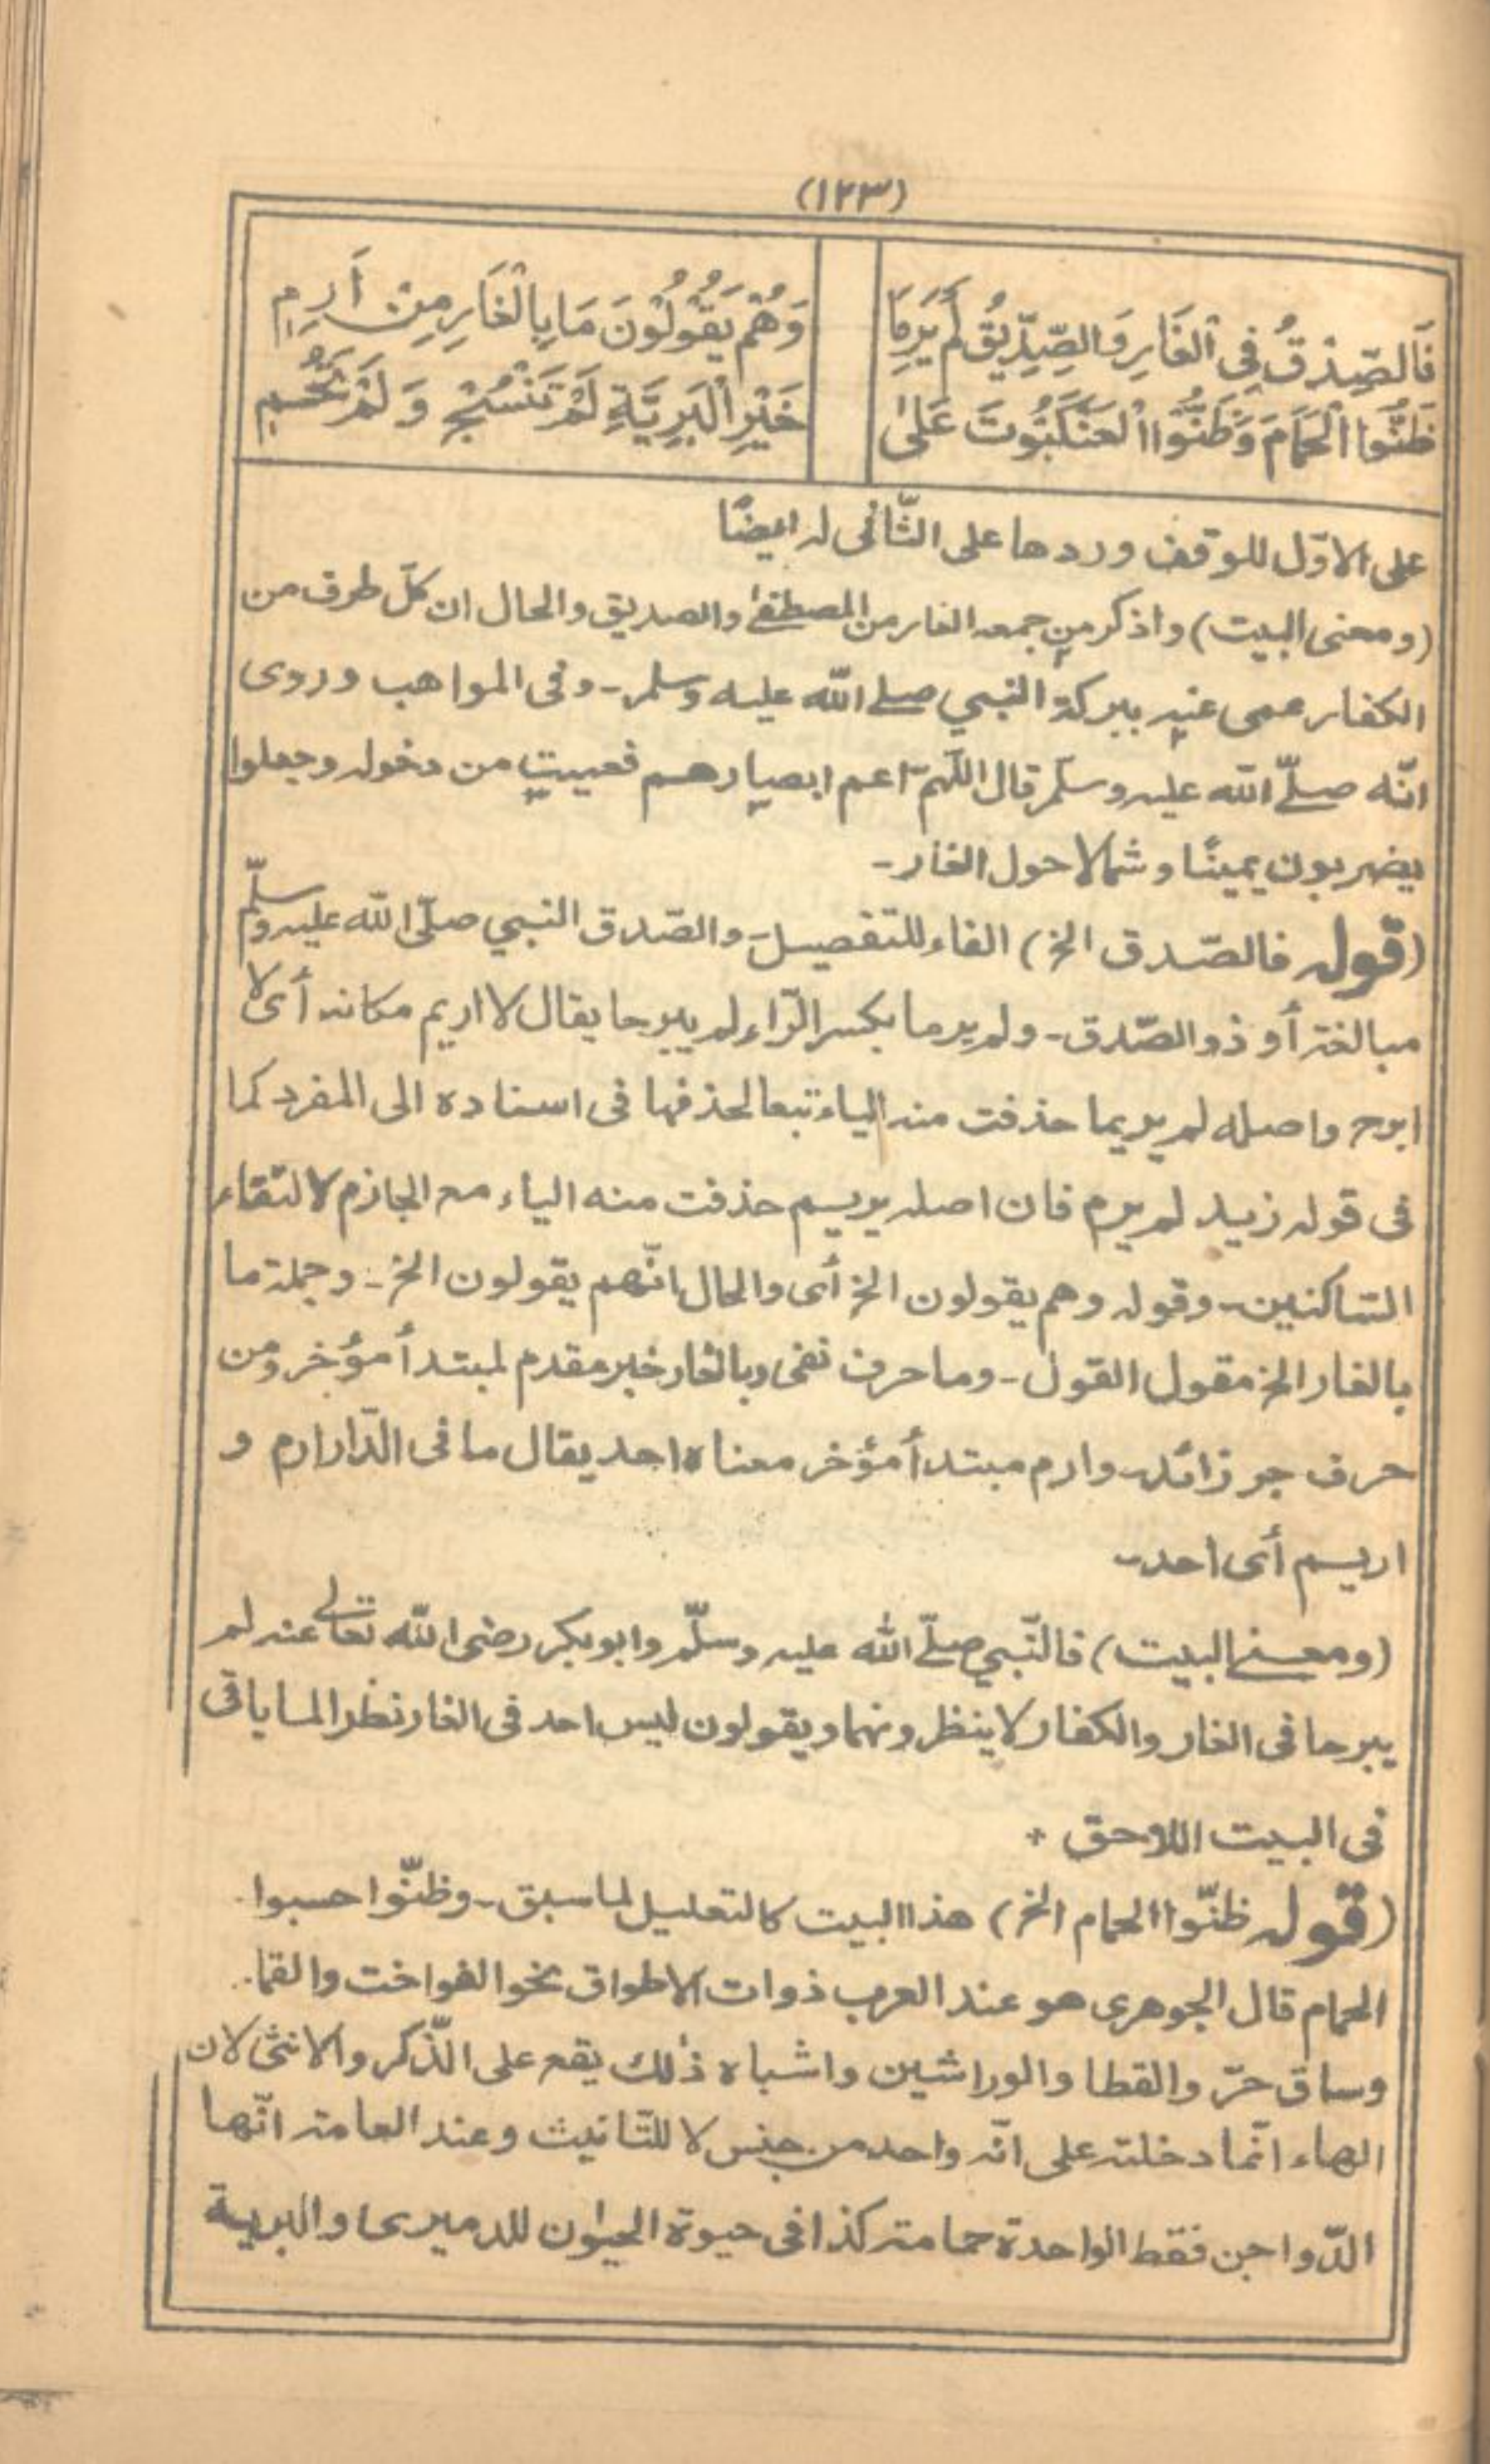 (١٢٣)
فَالصِّدْقُ فِي الْغَارِ وَالصِّدِّيقُ لَمْ يَرِمَا وَهُمْ يَقُوْلُوْنَ مَا بِالْغَارِ مِنْ أَرِمِ
ظَنُّوا الْحَمَامَ وَظَنُّوا الْعَنْكَبُوتَ عَلٰى خَيْرِ الْبَرِيَّةِ لَمْ تَنْسُجْ وَ لَمْ تَحُمِ
على الاوّل للوقف وردها على الثّانى له ايضًا
(ومعنى البيت) واذكر من جمعه الغار من المصطفى والصديق والحال ان كلّ طرف من
الكفار عمى عنه ببركة النبي صلے الله عليه وسلم - وفى المواهب وروى
انّه صلّے الله عليه وسلّم قال اللّهمّ اعم ابصارهم فعميت من دخوله وجعلوا
يضربون يمينًا وشمالا حول الغار -
(قوله فالصّدق الخ) الفاء للتفصيل - والصّدق النبي صلّى الله عليه وسلّم
مبالغة أو ذو الصّدق - ولم يرما بكسر الرّاء لم يبرحا يقال لا اريم مكانه أى لا
ابرح واصله لم يريما حذفت منه الياء تبعا لحذفها فى اسناده الى المفرد كما
فى قوله زيد لم يرم فان اصله يريم حذفت منه الياء مع الجازم لالتقاء
الساكنين - وقوله وهم يقولون الخ أى والحال انّهم يقولون الخ - وجملة ما
بالغار الخ مقول القول - وما حرف نفى وبالغار خبر مقدم لمبتدأ مؤخر ومن
حرف جر زائد - وارم مبتدأ مؤخر معناه احد يقال ما فى الدّار ارم و
اريم أى احد -
(ومعنے البيت) فالنّبي صلّے الله عليه وسلّم وابوبكر رضى الله تعالى عنه لم
يبرحا فى الغار والكفار لا ينظرونهما ويقولون ليس احد فى الغار نظرا لما ياتى
فى البيت اللاحق +
(قوله ظنّوا الحمام الخ) هذا البيت كالتعليل لما سبق - وظنّوا حسبوا
الحمام قال الجوهرى هو عند العرب ذوات الاطواق نحوا لفواخت والقما
وساق حرّ والقطا والوراشين واشباه ذٰلك يقع على الذّكر والانثى لان
الهاء انّما دخلته على انّه واحد من جنس لا للتّانيث وعند العامة انّها
الدّواجن فقط الواحدة حمامة كذا فى حيوة الحيٰون للدميرى والبرية